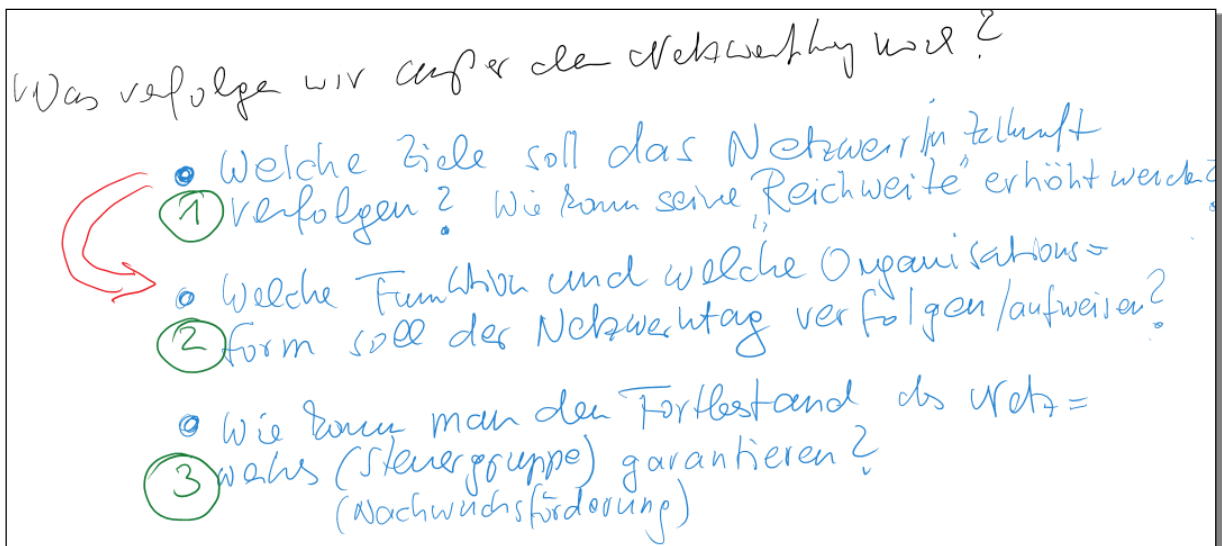 Was verfolgen wir außer dem Netzwerktag noch?
• Welche Ziele soll das Netzwerk in Zukunft
① verfolgen? Wie kann seine „Reichweite" erhöht werden?
• Welche Funktion und welche Organisations=
② form soll der Netzwerktag verfolgen/aufweisen?
• Wie kann man den Fortbestand des Netz=
③ werks (Steuergruppe) garantieren?
(Nachwuchsförderung)